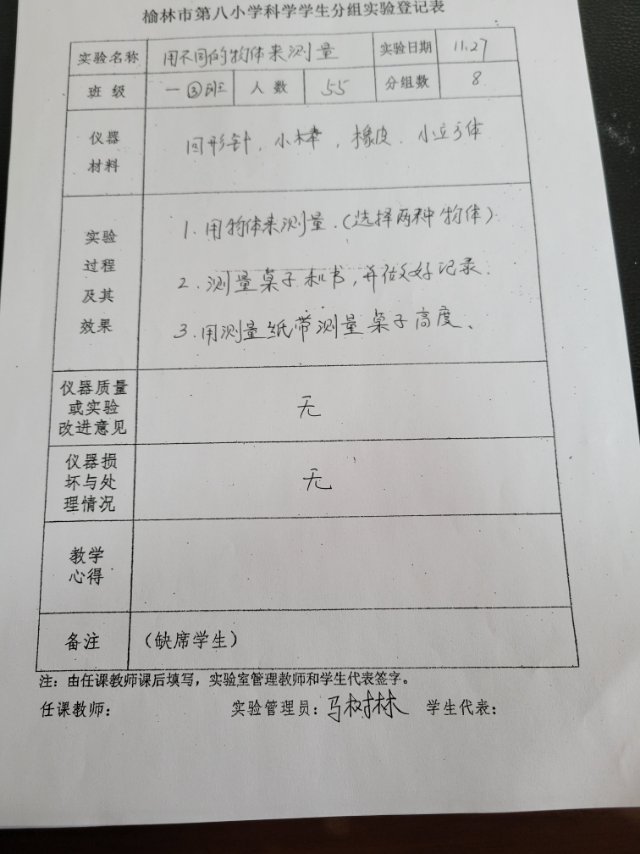 榆林市第八小学科学学生分组实验登记表
实验名称 用不同的物体来测量 实验日期 11.27
班 级 一③班 人 数 55 分组数 8
仪器
材料
回形针、小棒，橡皮、小立方体
实验
过程
及其
效果
1. 用物体来测量.(选择两种物体)
2. 测量桌子和书,并做好记录.
3. 用测量纸带测量桌子高度、
仪器质量
或实验
改进意见
无
仪器损
坏与处
理情况
无
教学
心得
备注 (缺席学生)
注：由任课教师课后填写，实验室管理教师和学生代表签字。
任课教师： 实验管理员：马树林 学生代表：